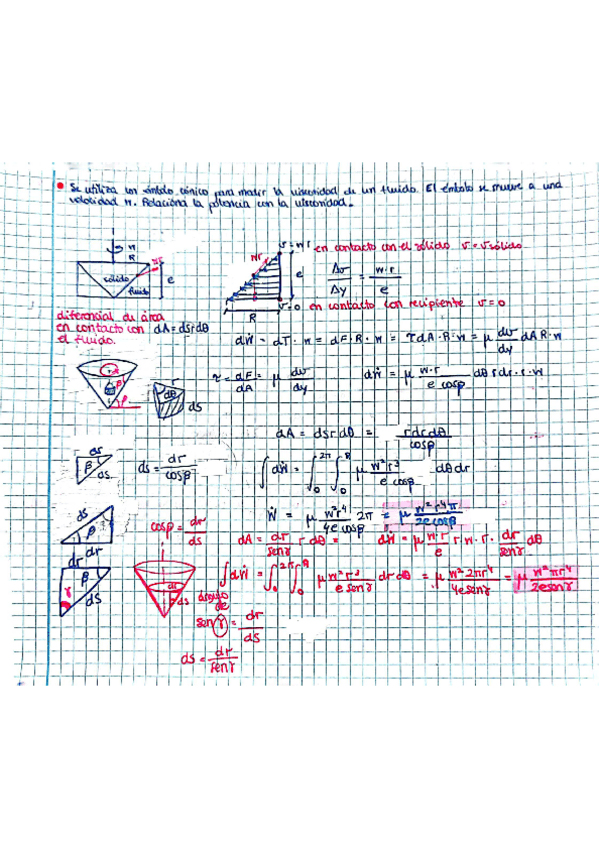 Se utiliza un émbolo cónico para medir la viscosidad de un fluido. El émbolo se mueve a una
velocidad n. Relaciona la potencia con la viscosidad.
n
R
sólido
fluido
e
wr
v = wr en contacto con el sólido v = v sólido
e
Δv / Δy = w·r / e
v = 0 en contacto con recipiente v = 0
R
diferencial de área
en contacto con dA = dsrdθ
el fluido.
dẆ = dT · n = dF · R · n = τdA·R·n = μ dv/dy dA R·n
τ = dF/dA = μ dv/dy
dẆ = μ w·r / e cosβ dθ rdr·r·w
dθ
ds
dA = dsrdθ = rdrdθ / cosβ
dr
β
ds
ds = dr / cosβ
∫dẆ = ∫₀^2π ∫₀^R μ w²r³ / e cosβ dθdr
Ẇ = μ w²r⁴ / 4e cosβ 2π = μ w²r⁴π / 2e cosβ
ds
β
dr
cosβ = dr / ds
dA = dr / senγ r dθ =
dẆ = μ w·r / e r·w·r· dr / senγ dθ
dr
β
γ
ds
dr
ds
∫dẆ = ∫₀^2π ∫₀^R μ w²r³ / e senγ dr dθ = μ w² 2πr⁴ / 4e senγ = μ w²πr⁴ / 2e senγ
ángulo
de
sen γ = dr / ds
ds = dr / senγ